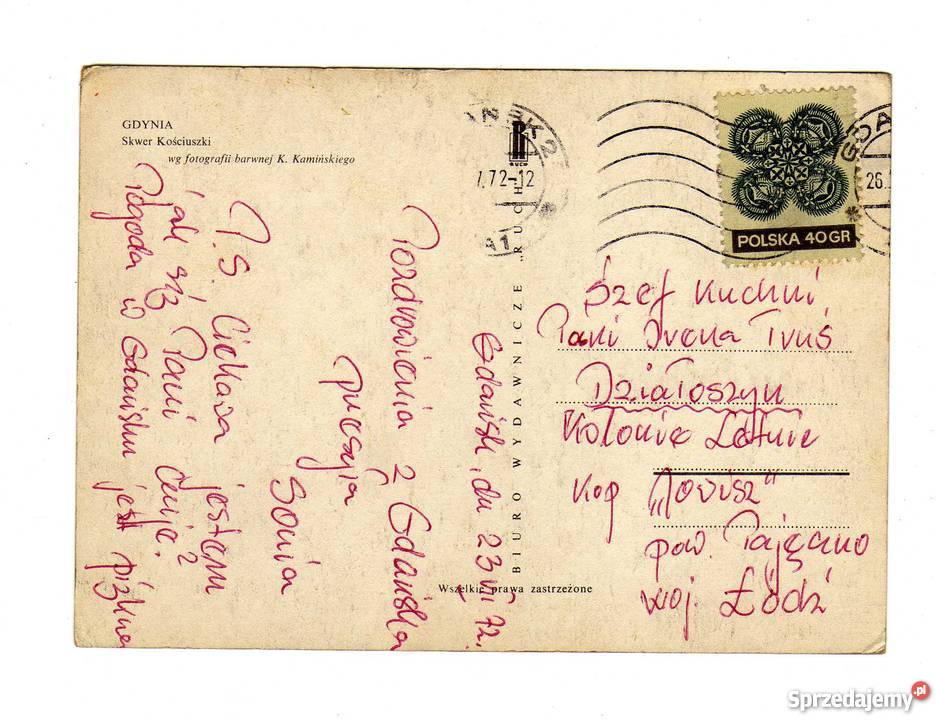 GDYNIA
Skwer Kościuszki
wg fotografii barwnej K. Kamińskiego
GDAŃSK 2
7.72-12
A1
BIURO WYDAWNICZE „RUCH"
GDA
26.
POLSKA 40GR
Gdańsk, dn 23 VI 72.
Pozdrowienia z Gdańska
przesyła
Sonia
P.S. Ciekawa jestem
jak się Pani czuje?
Pogoda w Gdańsku jest piękna
Szef Kuchni
Pani Irena Truś
Działoszyn
Kolonie Letnie
Kop
pow. Pajęczno
woj. Łódź
Wszelkie prawa zastrzeżone
Sprzedajemy.pl